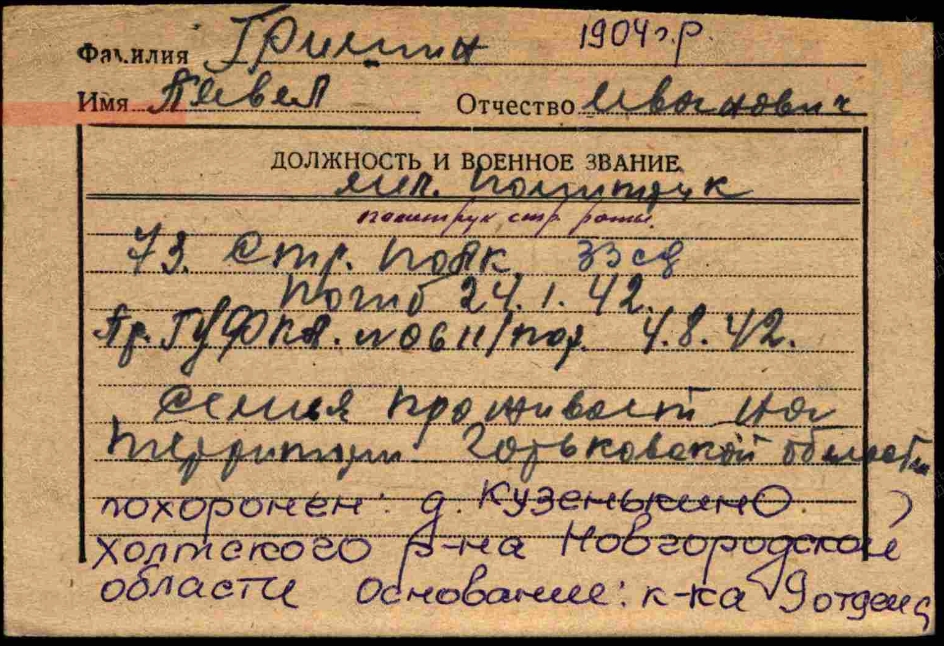 Фамилия Гришин 1904 г.р.
Имя Павел Отчество Иванович
ДОЛЖНОСТЬ И ВОЕННОЕ ЗВАНИЕ
мл. политрук
политрук стр роты.
73. Стр. полк, 33 сд
погиб 24.1.42.
Пр. ГУФКА. № 0611/пог. 4.8.42.
Семья проживает на
территории Горьковской области
похоронен: д. Кузенькино
Холмского р-на Новгородской
области Основание: к-ка 9 отдела